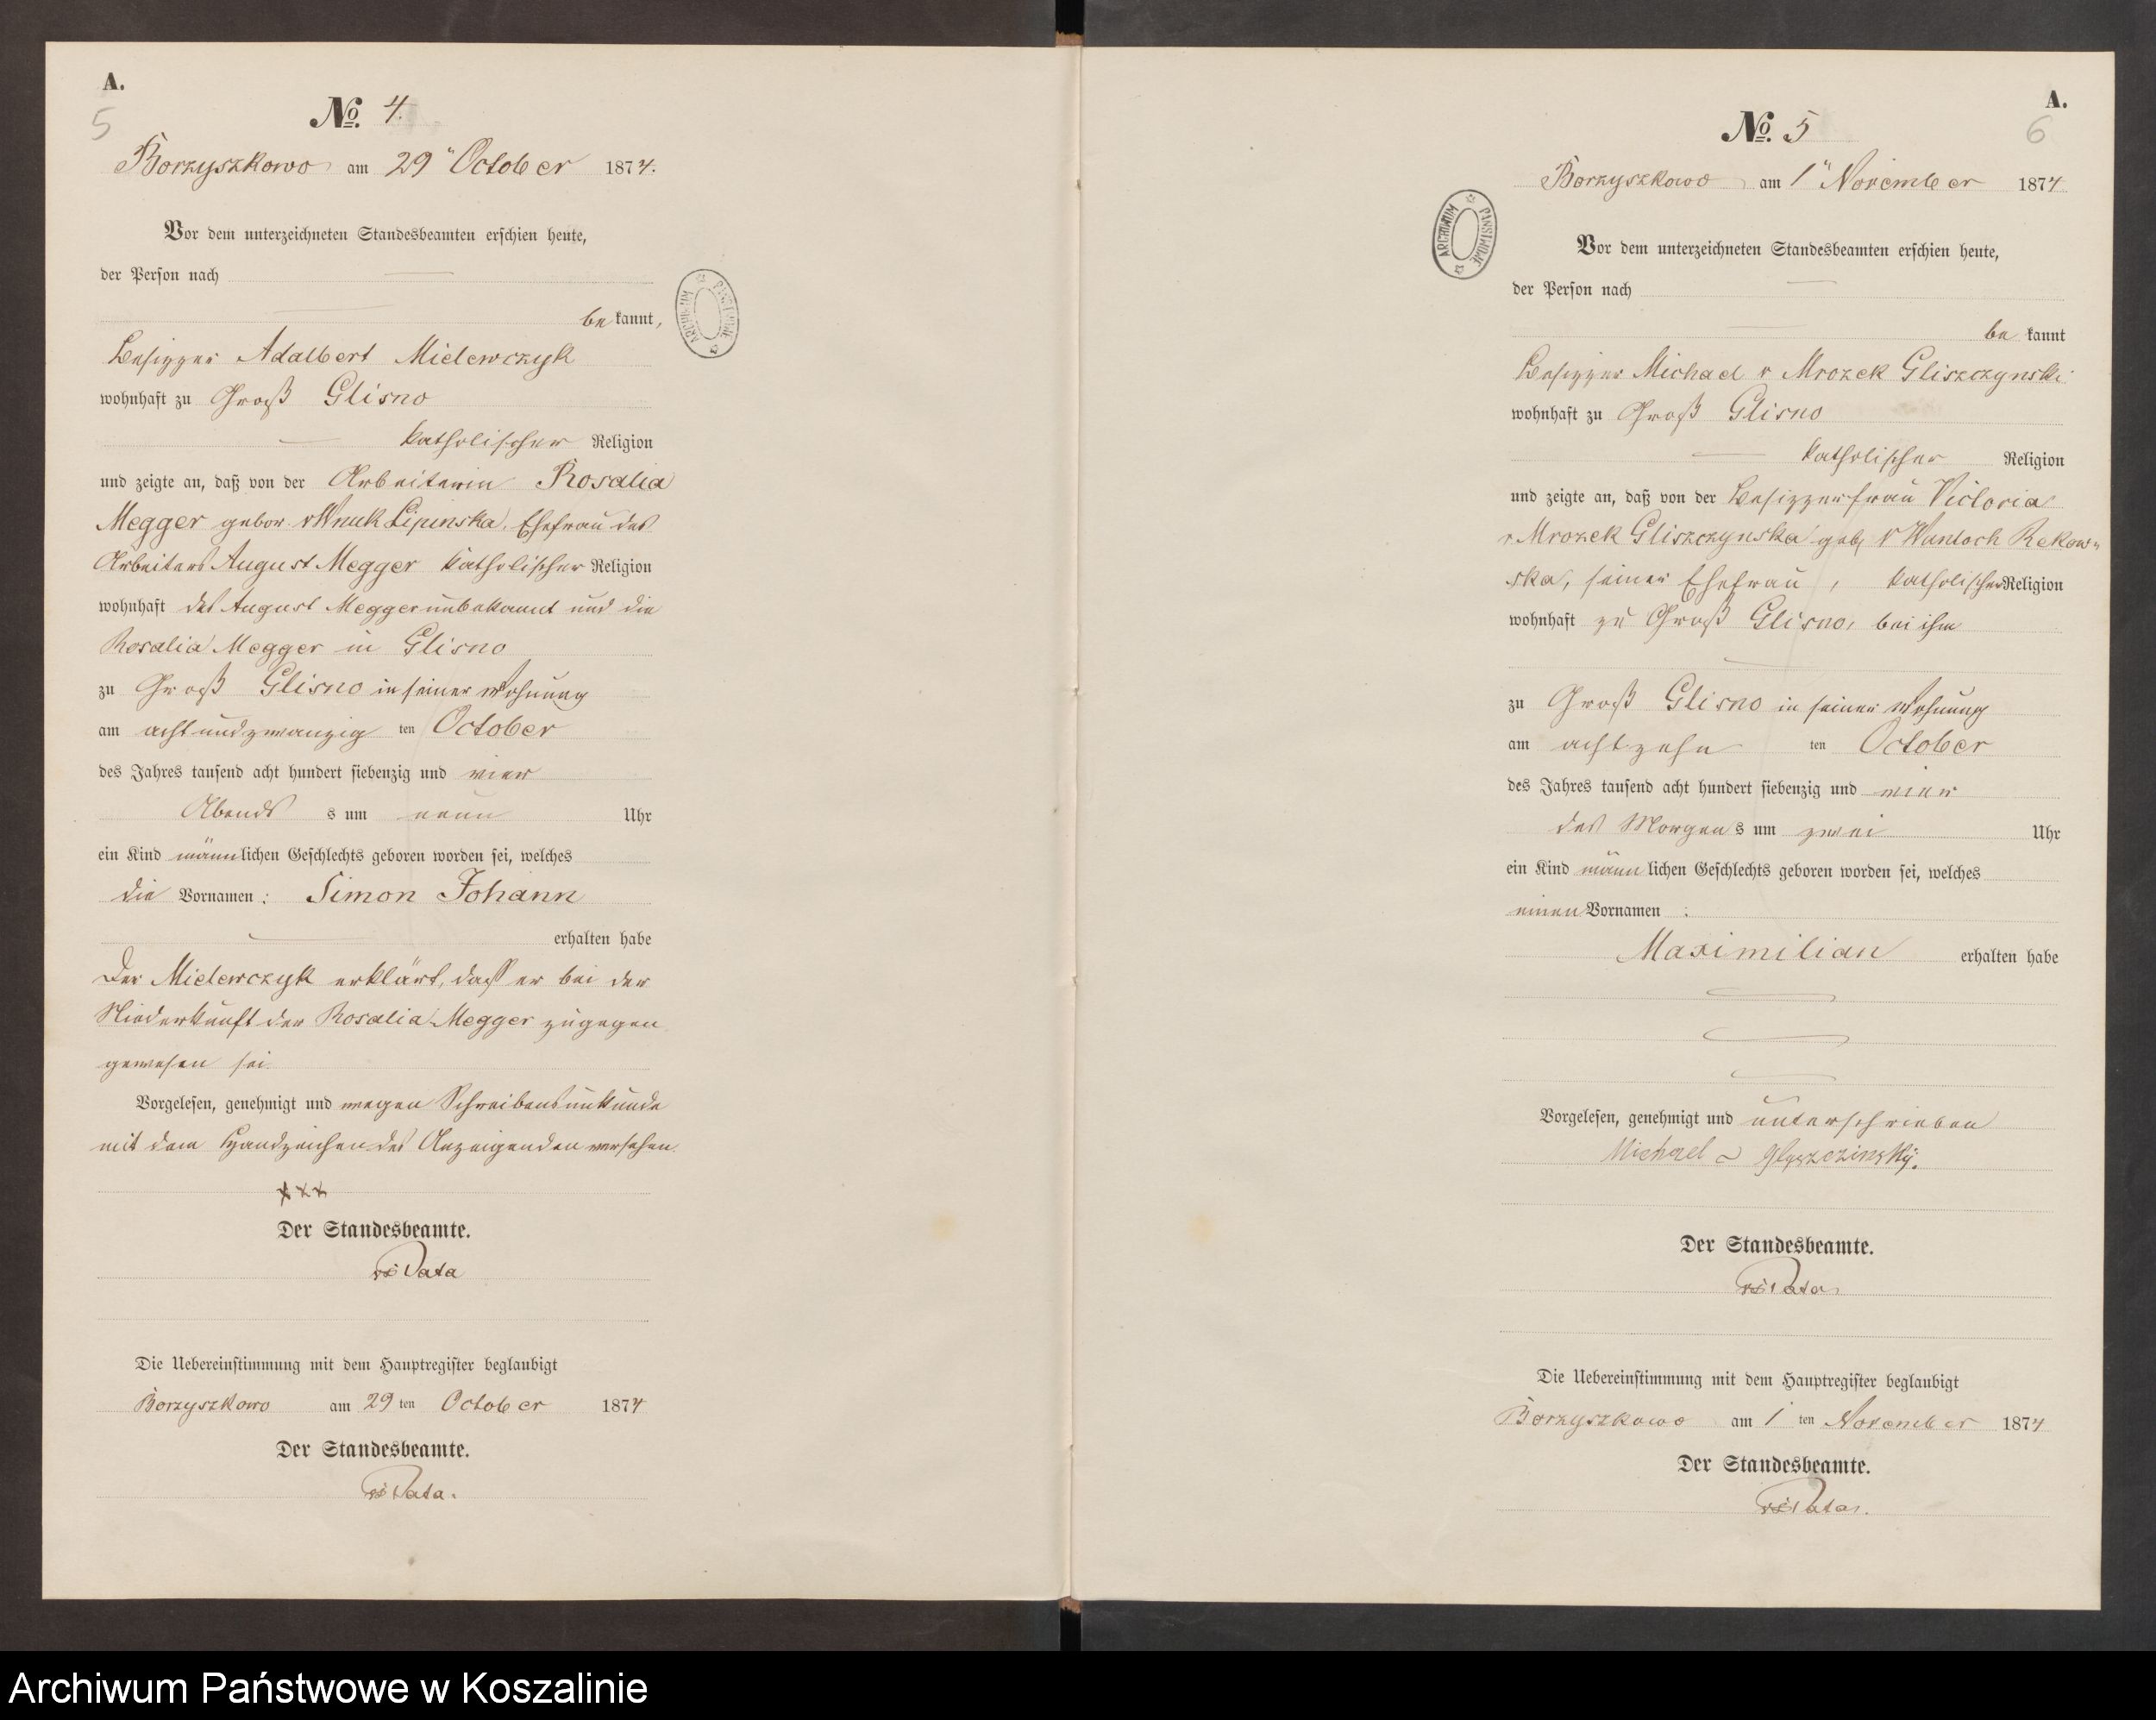 A.
5
No. 4.
Borzyszkowo am 29" October 1874.
Vor dem unterzeichneten Standesbeamten erschien heute,
der Person nach
bekannt,
Besizzer Adalbert Mielewczyk
wohnhaft zu Groß Glisno
katholischer Religion
und zeigte an, daß von der Arbeiterin Rosalia
Megger gebor. v Wnuk Lipinska, Ehefrau des
Arbeiters August Megger katholischer Religion
wohnhaft des August Megger unbekannt und die
Rosalia Megger in Glisno
zu Groß Glisno in seiner Wohnung
am achtundzwanzig ten October
des Jahres tausend acht hundert siebenzig und vier
Abends s um neun Uhr
ein Kind männlichen Geschlechts geboren worden sei, welches
die Vornamen: Simon Johann
erhalten habe
Der Mielewczyk erklärt, daß er bei der
Niederkunft der Rosalia Megger zugegen
gewesen sei.
Vorgelesen, genehmigt und wegen Schreibensunkunde
mit dem Handzeichen des Anzeigenden versehen.
xxx
Der Standesbeamte.
Die Uebereinstimmung mit dem Hauptregister beglaubigt
Borzyszkowo am 29 ten October 1874
Der Standesbeamte.
A.
6
No. 5
Borzyszkowo am 1" November 1874
ARCHIWUM PAŃSTWOWE
Vor dem unterzeichneten Standesbeamten erschien heute,
der Person nach
bekannt
Besizzer Michael v Mrozek Gliszczynski
wohnhaft zu Groß Glisno
katholischer Religion
und zeigte an, daß von der Besizzerfrau Victoria
v Mrozek Gliszczynska geb. v Wantoch Rekow-
ska, seiner Ehefrau, katholischer Religion
wohnhaft zu Groß Glisno, bei ihm
zu Groß Glisno in seiner Wohnung
am achtzehn ten October
des Jahres tausend acht hundert siebenzig und vier
des Morgens um zwei Uhr
ein Kind männlichen Geschlechts geboren worden sei, welches
einen Vornamen :
Maximilian erhalten habe
Vorgelesen, genehmigt und unterschrieben
Michael v Glyszczinsky.
Der Standesbeamte.
Die Uebereinstimmung mit dem Hauptregister beglaubigt
Borzyszkowo am 1 ten November 1874
Der Standesbeamte.
Archiwum Państwowe w Koszalinie